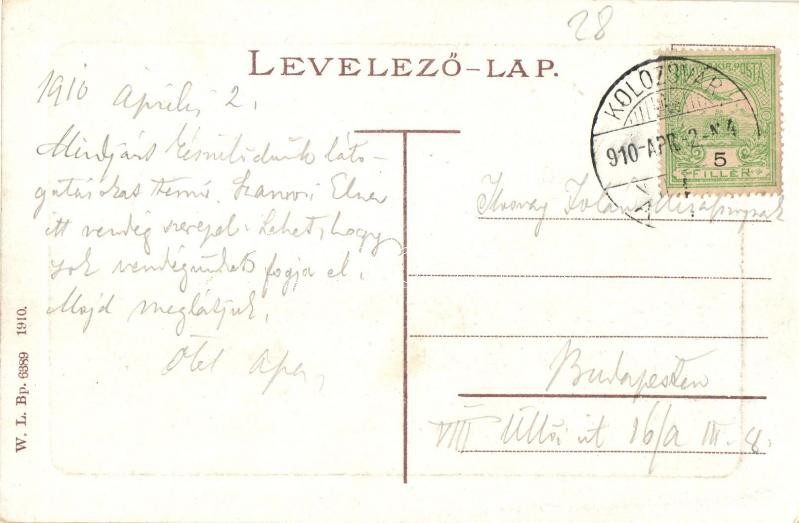 28
LEVELEZŐ-LAP.
1910 Április 2.
Mindjárt készülődünk láto-
gatásokat tenni. Elza
itt vendég szerepel. Lehet, hogy
sok vendégünket fogja el.
Majd meglátjuk.
Ölel Apa
KOLOZSVÁR
910-APR. 2-N4
MAGY. KIR. POSTA
5
FILLÉR
Ilosvay Jolán
Budapesten
VIII Üllői út 16/a III. 8.
W. L. Bp. 6389 1910.